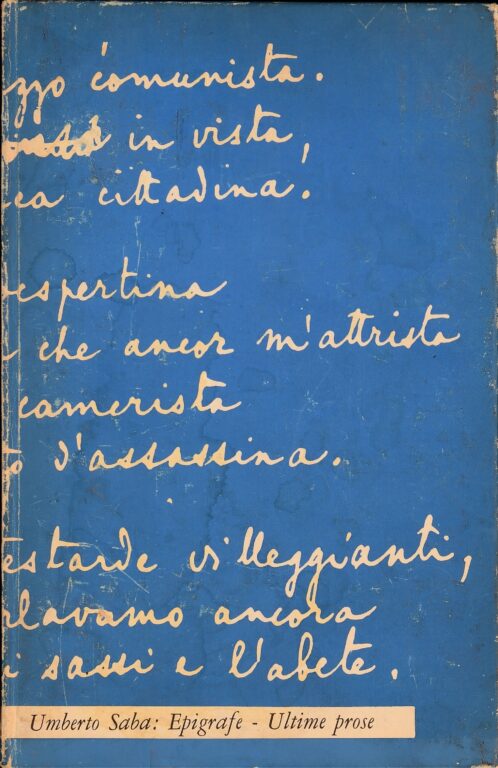 zzo comunista.
in vista,
ca cittadina.
vespertina
che ancor m'attrista
camerista
to d'assassina.
testarde villeggianti,
rlavamo ancora
i sassi e l'abete.
Umberto Saba: Epigrafe - Ultime prose